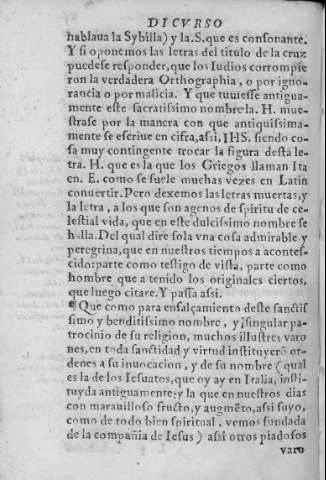 DICVRSO
hablaua la Sybilla) y la.S.que es consonante.
Y si oponemos las letras del titulo de la cruz
puedese responder, que los Iudios corrompie
ron la verdadera Orthographia, o por igno-
rancia o por malicia. Y que tuuiesse antigua-
mente este sacratissimo nombre la. H. mue-
strase por la manera con que antiquissima-
mente se escriue en cifra, assi, IHS. siendo co-
sa muy contingente trocar la figura desta le-
tra. H. que es la que los Griegos llaman Ita
en. E. como se suele muchas vezes en Latin
conuertir. Pero dexemos las letras muertas, y
la letra, a los que son agenos de spiritu de ce-
lestial vida, que en este dulcissimo nombre se
halla. Del qual dire sola vna cosa admirable y
peregrina, que en nuestros tiempos a acontes-
cido: parte como testigo de vista, parte como
hombre que a tenido los originales ciertos,
que luego citare. Y passa assi.
¶ Que como para ensalçamiento deste sanctis
simo y benditissimo nombre, y singular pa-
trocinio de su religion, muchos illustres varo
nes, en toda sanctidad y virtud instituyerō or-
denes a su inuocacion, y de su nombre (qual
es la de los Iesuatos, que oy ay en Italia, insti-
tuyda antiguamente: y la que en nuestros dias
con marauilloso fructo, y augmēto, assi suyo,
como de todo bien spiritual, vemos fundada
de la compañia de Iesus) assi otros piadosos
varo